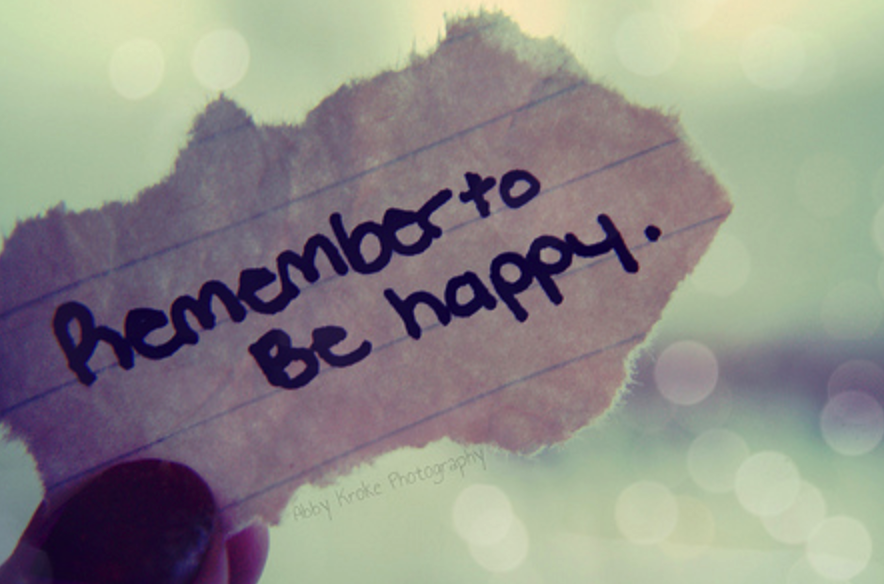 Remember to
Be happy.
Abby Kroke Photography